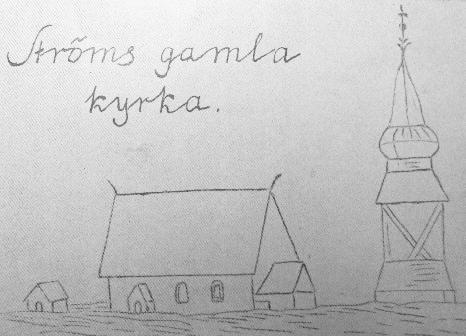 Ströms gamla
kyrka.